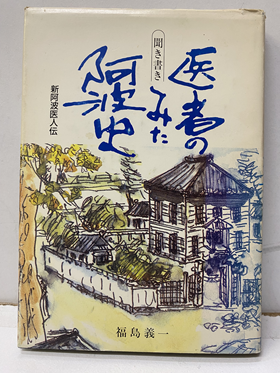 聞き書き
医者の
みた
阿波史
新阿波医人伝
福島義一